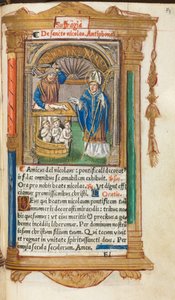 Suffragia
De sancto nicolao. Antiphona.
Amicus dei nicolaus: pontificali decorat
infula: omnibus se amabilem exhibuit.
Ora pro nobis beate nicolae. Ut digni effi
ciamur promissionibus christi. Oratio.
Deus qui beatum nicolaum pontificem tuum
decorasti miraculis: tribue
quesumus: ut eius meritis et
a gehenne incendiis liberemur. Per dominum
iesum christum filium tuum. Qui tecum vivit
et regnat in unitate spiritus sancti deus. Per
secula seculorum. Amen.